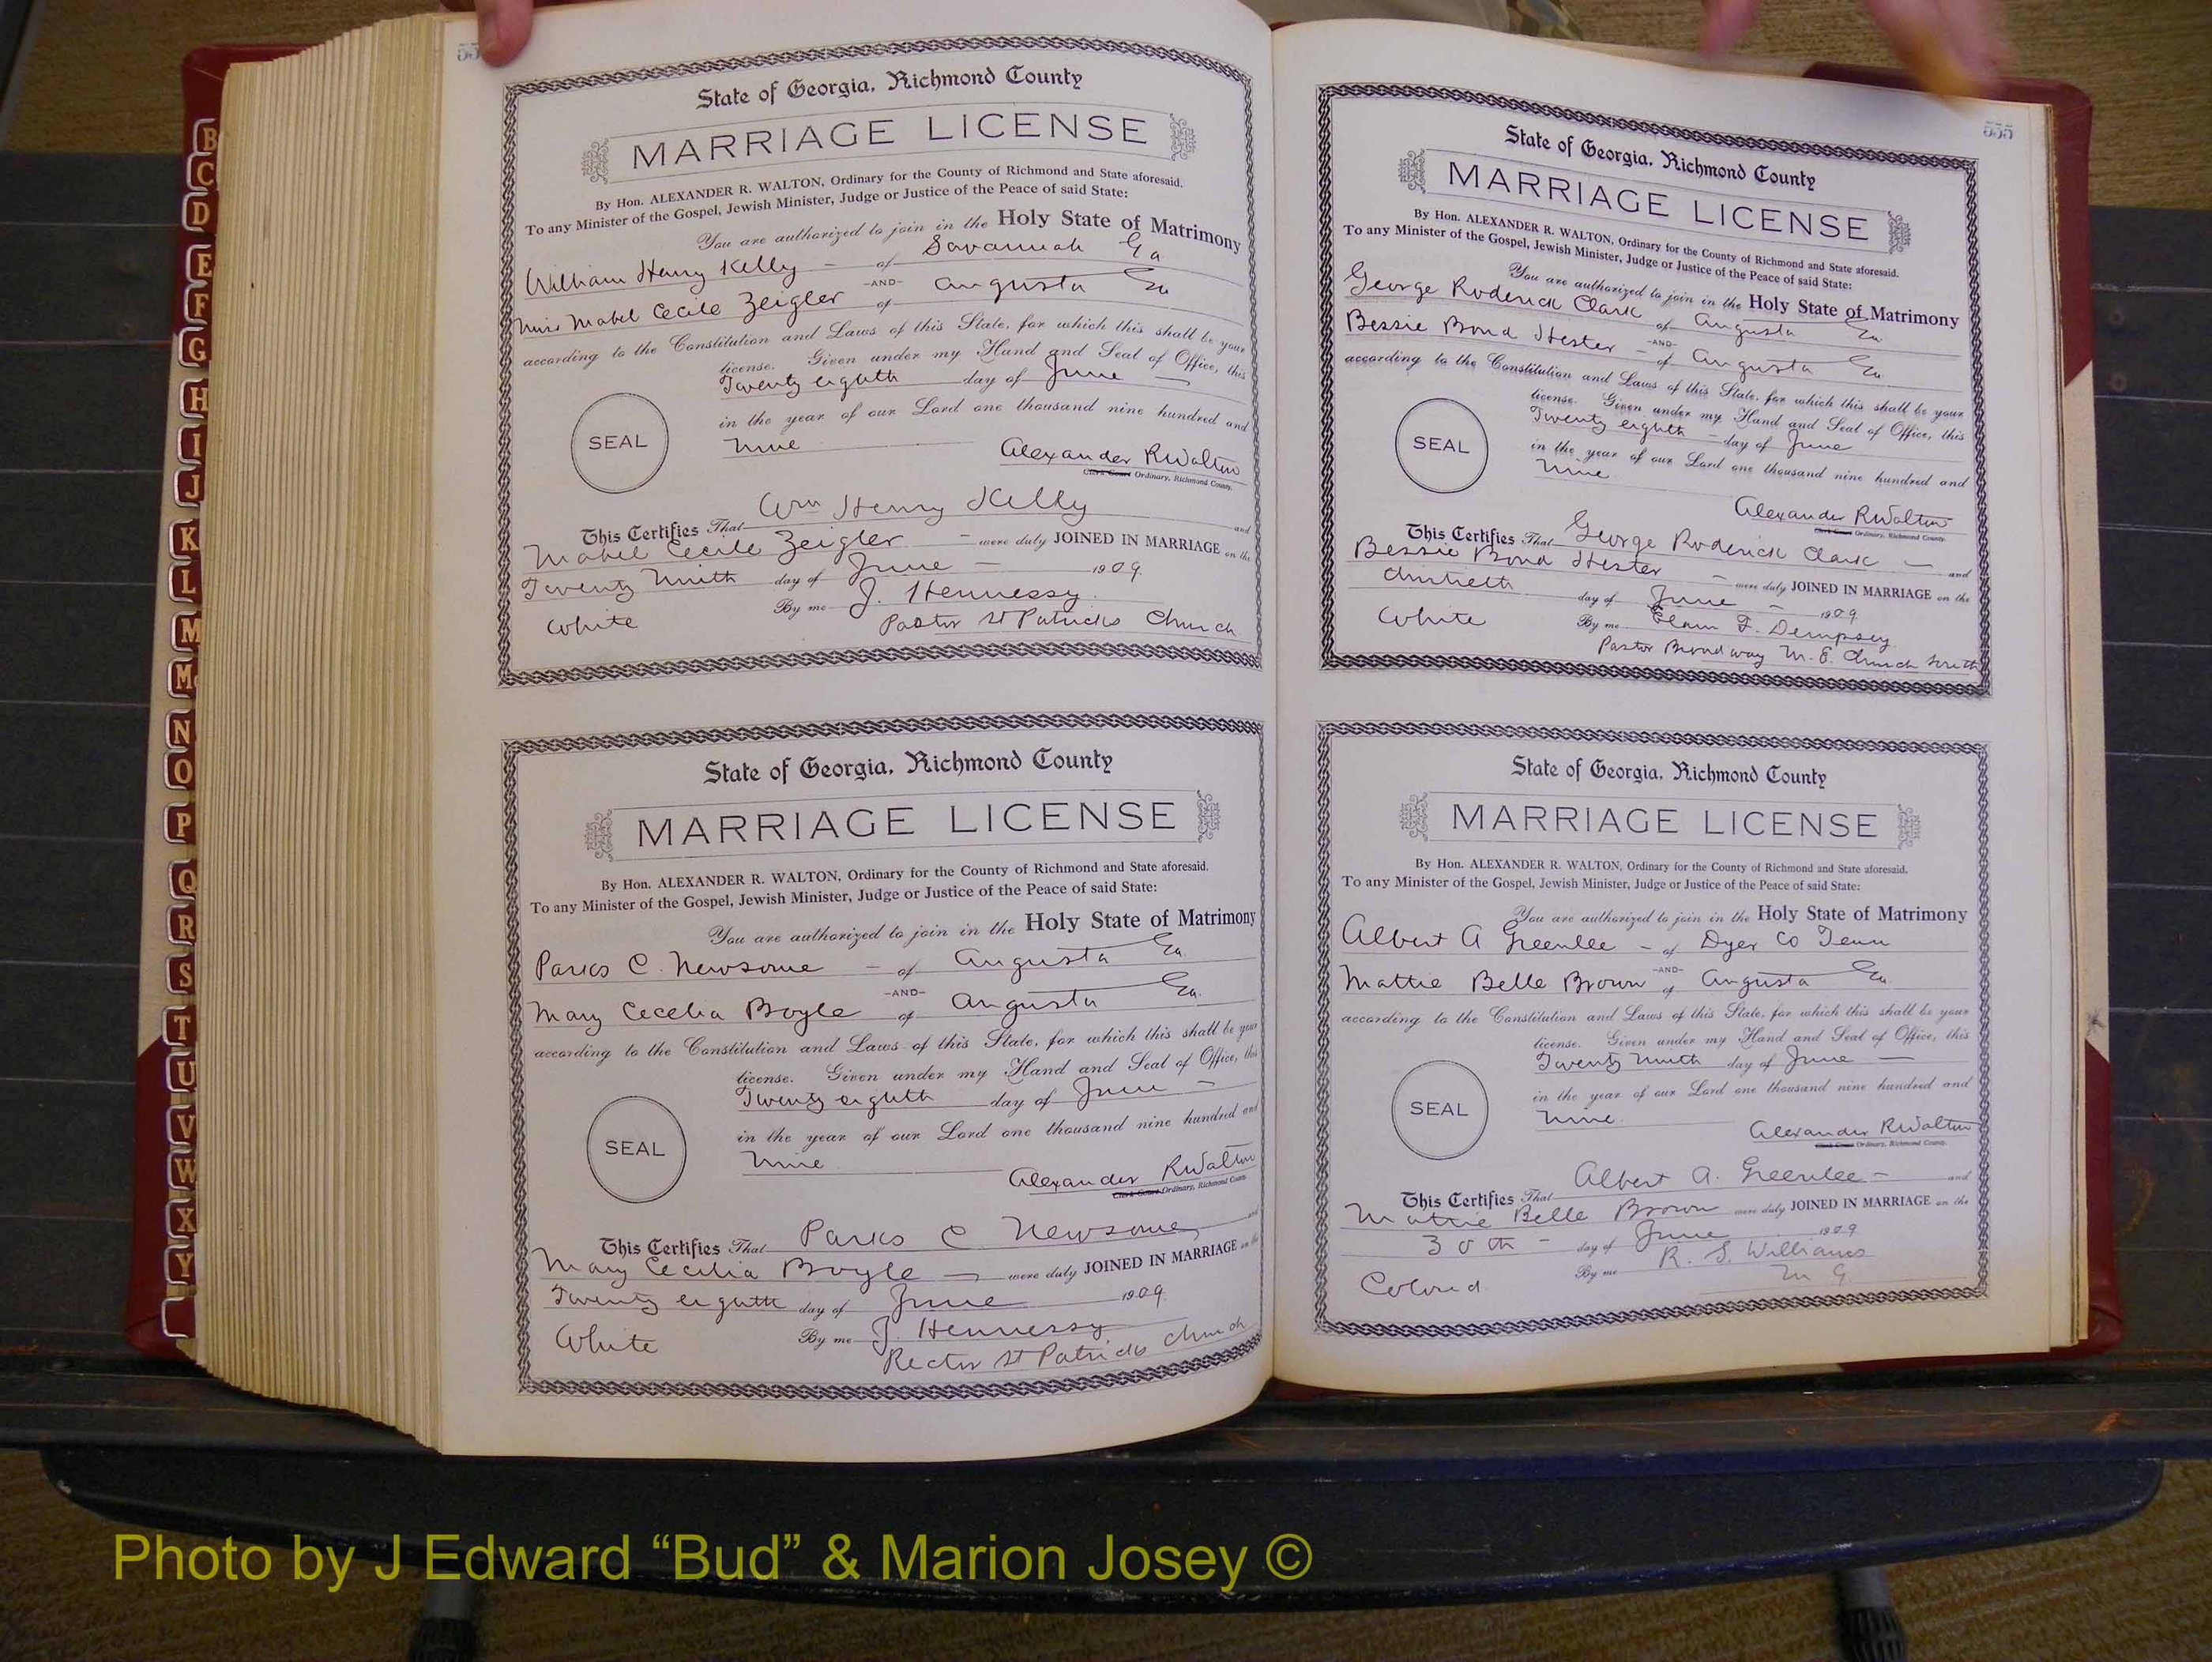 B
C
D
E
F
G
H
I
J
K
L
M
Mc
N
O
P
Q
R
S
T
U
V
W
X
Y
State of Georgia, Richmond County
MARRIAGE LICENSE
By Hon. ALEXANDER R. WALTON, Ordinary for the County of Richmond and State aforesaid.
To any Minister of the Gospel, Jewish Minister, Judge or Justice of the Peace of said State:
You are authorized to join in the Holy State of Matrimony
William Henry Kelly - of Savannah Ga
-AND-
Miss Mabel Cecile Zeigler of Augusta Ga
according to the Constitution and Laws of this State, for which this shall be your
license. Given under my Hand and Seal of Office, this
Twenty eighth day of June -
in the year of our Lord one thousand nine hundred and
SEAL
nine
Alexander R Walton
Clerk Court Ordinary, Richmond County.
This Certifies That Wm Henry Kelly and
Mabel Cecile Zeigler - were duly JOINED IN MARRIAGE on the
Twenty Ninth day of June - 1909.
White By me J. Hennessy.
Pastor St Patricks Church
State of Georgia, Richmond County
MARRIAGE LICENSE
By Hon. ALEXANDER R. WALTON, Ordinary for the County of Richmond and State aforesaid.
To any Minister of the Gospel, Jewish Minister, Judge or Justice of the Peace of said State:
You are authorized to join in the Holy State of Matrimony
Parks C. Newsome - of Augusta Ga.
-AND-
Mary Cecelia Boyle of Augusta Ga.
according to the Constitution and Laws of this State, for which this shall be your
license. Given under my Hand and Seal of Office, this
Twenty eighth day of June -
in the year of our Lord one thousand nine hundred and
SEAL
Nine
Alexander R Walton
Clerk Court Ordinary, Richmond County.
This Certifies That Parks C Newsome, and
Mary Cecilia Boyle - were duly JOINED IN MARRIAGE on the
Twenty eighth day of June 1909.
White By me J. Hennessy
Rector St Patricks Church
555
State of Georgia, Richmond County
MARRIAGE LICENSE
By Hon. ALEXANDER R. WALTON, Ordinary for the County of Richmond and State aforesaid.
To any Minister of the Gospel, Jewish Minister, Judge or Justice of the Peace of said State:
You are authorized to join in the Holy State of Matrimony
George Roderick Clark of Augusta Ga
-AND-
Bessie Bond Hester - of Augusta Ga.
according to the Constitution and Laws of this State, for which this shall be your
license. Given under my Hand and Seal of Office, this
Twenty eighth - day of June
in the year of our Lord one thousand nine hundred and
SEAL
Nine.
Alexander R Walton
Clerk Court Ordinary, Richmond County.
This Certifies That George Roderick Clark - and
Bessie Bond Hester - were duly JOINED IN MARRIAGE on the
day of June - 1909
White By me Elam F. Dempsey.
Pastor Broadway M. E. Church South
State of Georgia, Richmond County
MARRIAGE LICENSE
By Hon. ALEXANDER R. WALTON, Ordinary for the County of Richmond and State aforesaid.
To any Minister of the Gospel, Jewish Minister, Judge or Justice of the Peace of said State:
You are authorized to join in the Holy State of Matrimony
Albert A Greenlee - of Dyer Co Tenn
-AND-
Mattie Belle Brown of Augusta Ga.
according to the Constitution and Laws of this State, for which this shall be your
license. Given under my Hand and Seal of Office, this
Twenty Ninth day of June -
in the year of our Lord one thousand nine hundred and
SEAL
Nine.
Alexander R Walton
Clerk Court Ordinary, Richmond County.
This Certifies That Albert A. Greenlee - and
Mattie Belle Brown were duly JOINED IN MARRIAGE on the
30th - day of June 1909
Colored By me R. S. Williams
M G.
Photo by J Edward “Bud” & Marion Josey ©